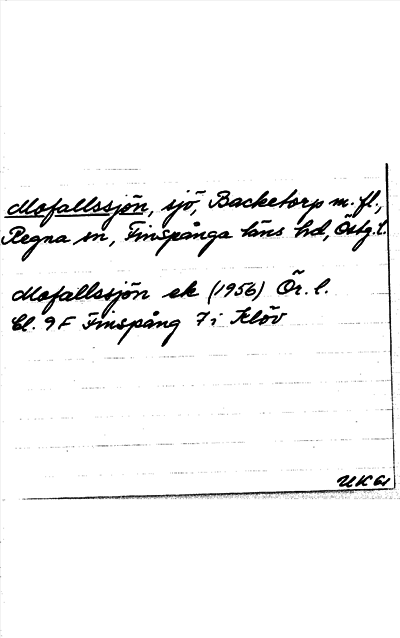 Mofallssjön, sjö, Backetorp m. fl.,
Regna sn, Finspånga läns hd, Östg. l.
Mofallssjön ek (1956) Ör. l.
Bl. 9F Finspång 7i Klöv
UK 61